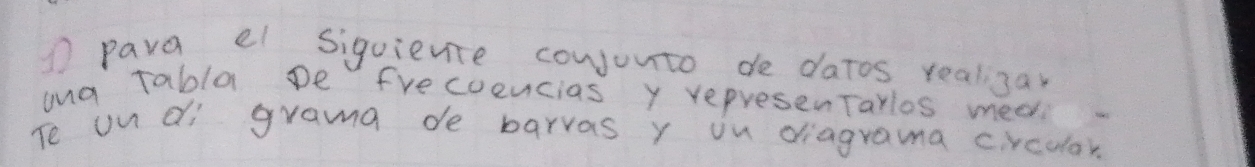 1) para el siguiente conjunto de datos realizar
una Tabla De frecoencias y representarlos medi -
Te un di grama de barras y un diagrama circular